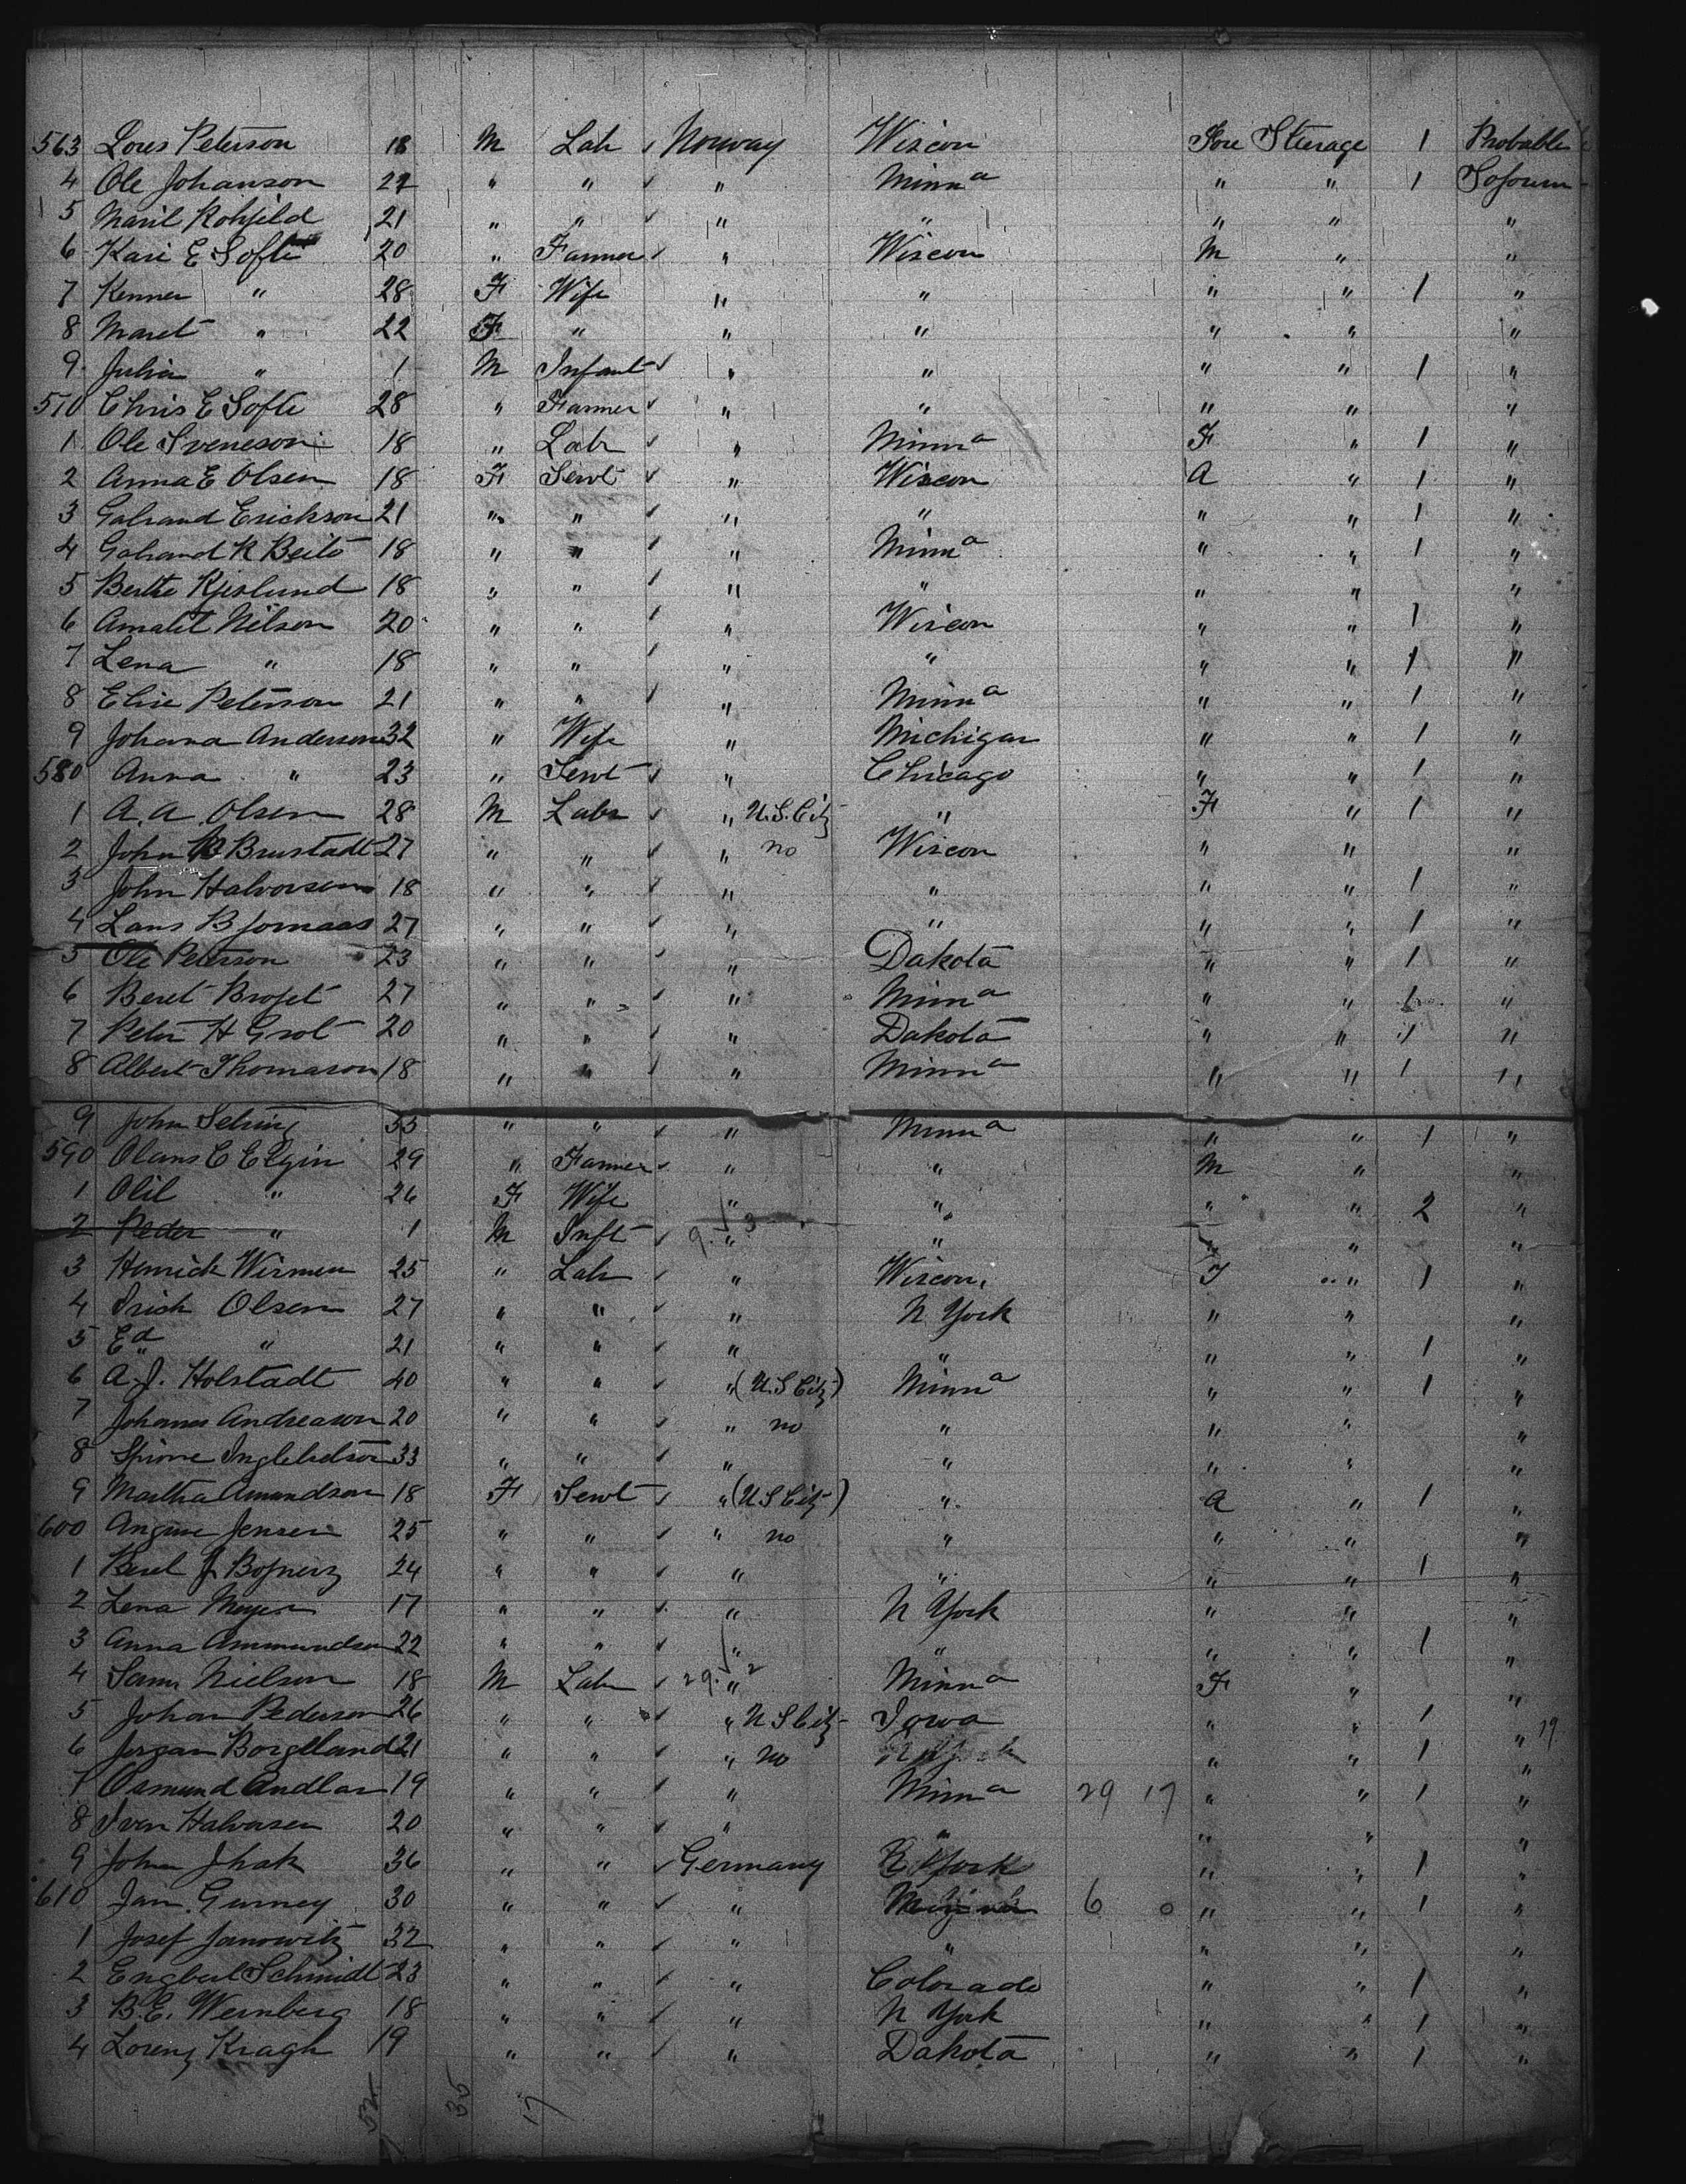 563 Lores Peterson 18 M Labr ✓ Norway Wiscon Fore Steerage 1 Probable
4 Ole Johanson 22 " " ✓ " Minna " " 1 Sojourn
5 Marit Rohjeld 21 " " ✓ " " " " "
6 Kari E Softe 20 " Farmer ✓ " Wiscon M " "
7 Kenner " 28 F Wife " " " " 1 "
8 Maret " 22 F " " " " " "
9 Julia " 1 M Infant ✓ " " " " 1 "
570 Chris E Softe 28 " Farmer ✓ " " " " "
1 Ole Sveneson 18 " Labr ✓ " Minna F " 1 "
2 Anna E Olsen 18 F Servt ✓ " Wiscon A " 1 "
3 Golrand Erickson 21 " " ✓ " " " " 1 "
4 Golrand R Beito 18 " " ✓ " Minna " " 1 "
5 Berthe Kjeslund 18 " " ✓ " " " " "
6 Amalit Nilson 20 " " ✓ " Wiscon " " 1 "
7 Lena " 18 " " ✓ " " " " 1 "
8 Elise Peterson 21 " " ✓ " Minna " " 1 "
9 Johana Anderson 32 " Wife " Michigan " " 1 "
580 Anna " 23 " Servt ✓ " Chicago " " 1 "
1 A. A. Olsen 28 M Labr ✓ " U.S. Citz " F " 1 "
2 John B Brustadt 27 " " ✓ " no Wiscon " " "
3 John Halvorsen 18 " " ✓ " " " " 1 "
4 Lars Bjornaas 27 " " ✓ " " " " 1 "
5 Ole Peterson 23 " " ✓ " Dakota " " 1 "
6 Beret Brojet 27 " " ✓ " Minna " " 1 "
7 Peter H Grot 20 " " ✓ " Dakota " " 1 "
8 Albert Thomason 18 " " ✓ " Minna " " 1 "
9 John Selsing 33 " " ✓ " Minna " " 1 "
590 Olans C Elgin 29 " Farmer ✓ " " M " "
1 Olil " 26 F Wife " " " " 2 "
2 Peder " 1 M Inft ✓ 9 " 3 " " " "
3 Henrick Wirmen 25 " Labr ✓ " Wiscon. F " 1 "
4 Irick Olsen 27 " " ✓ " N York " " "
5 Ed " 21 " " ✓ " " " " 1 "
6 A. J. Holstadt 40 " " ✓ " (U.S Citz) Minna " " 1 "
7 Johanes Andreason 20 " " ✓ " no " " " "
8 Inglebretson 33 " " ✓ " " " " "
9 Martha Amundson 18 F Servt ✓ " (U S Citz) " A " 1 "
600 Angine Jensen 25 " " ✓ " no " " " "
1 Berel J. 24 " " ✓ " " " " 1 "
2 Lena Meyer 17 " " ✓ " N York " " "
3 Anna Ammundsen 22 " " ✓ " " " " 1 "
4 Sam Nielson 18 M Labr ✓ 29 " 2 Minna F " "
5 Johan Pederson 26 " " ✓ " U S Citz Iowa " " 1 "
6 Jorgan Borgeland 21 " " " no N York " " 1 " 19
7 Osmund Andlar 19 " " ✓ " Minna 29 17 " " 1 "
8 Iven Halvorsen 20 " " ✓ " " " " "
9 John Jhak 36 " " ✓ Germany N York " " 1 "
610 Jan. Gurney 30 " " ✓ " 6 0 " " 1 "
1 Josef Janowitz 32 " " ✓ " " " " "
2 Engbert Schmidt 23 " " ✓ " Colorado " " 1 "
3 B. E. Wernberg 18 " " ✓ " N York " " 1 "
4 Lorenz Kragh 19 " " ✓ " Dakota " " 1 "
52 35 17